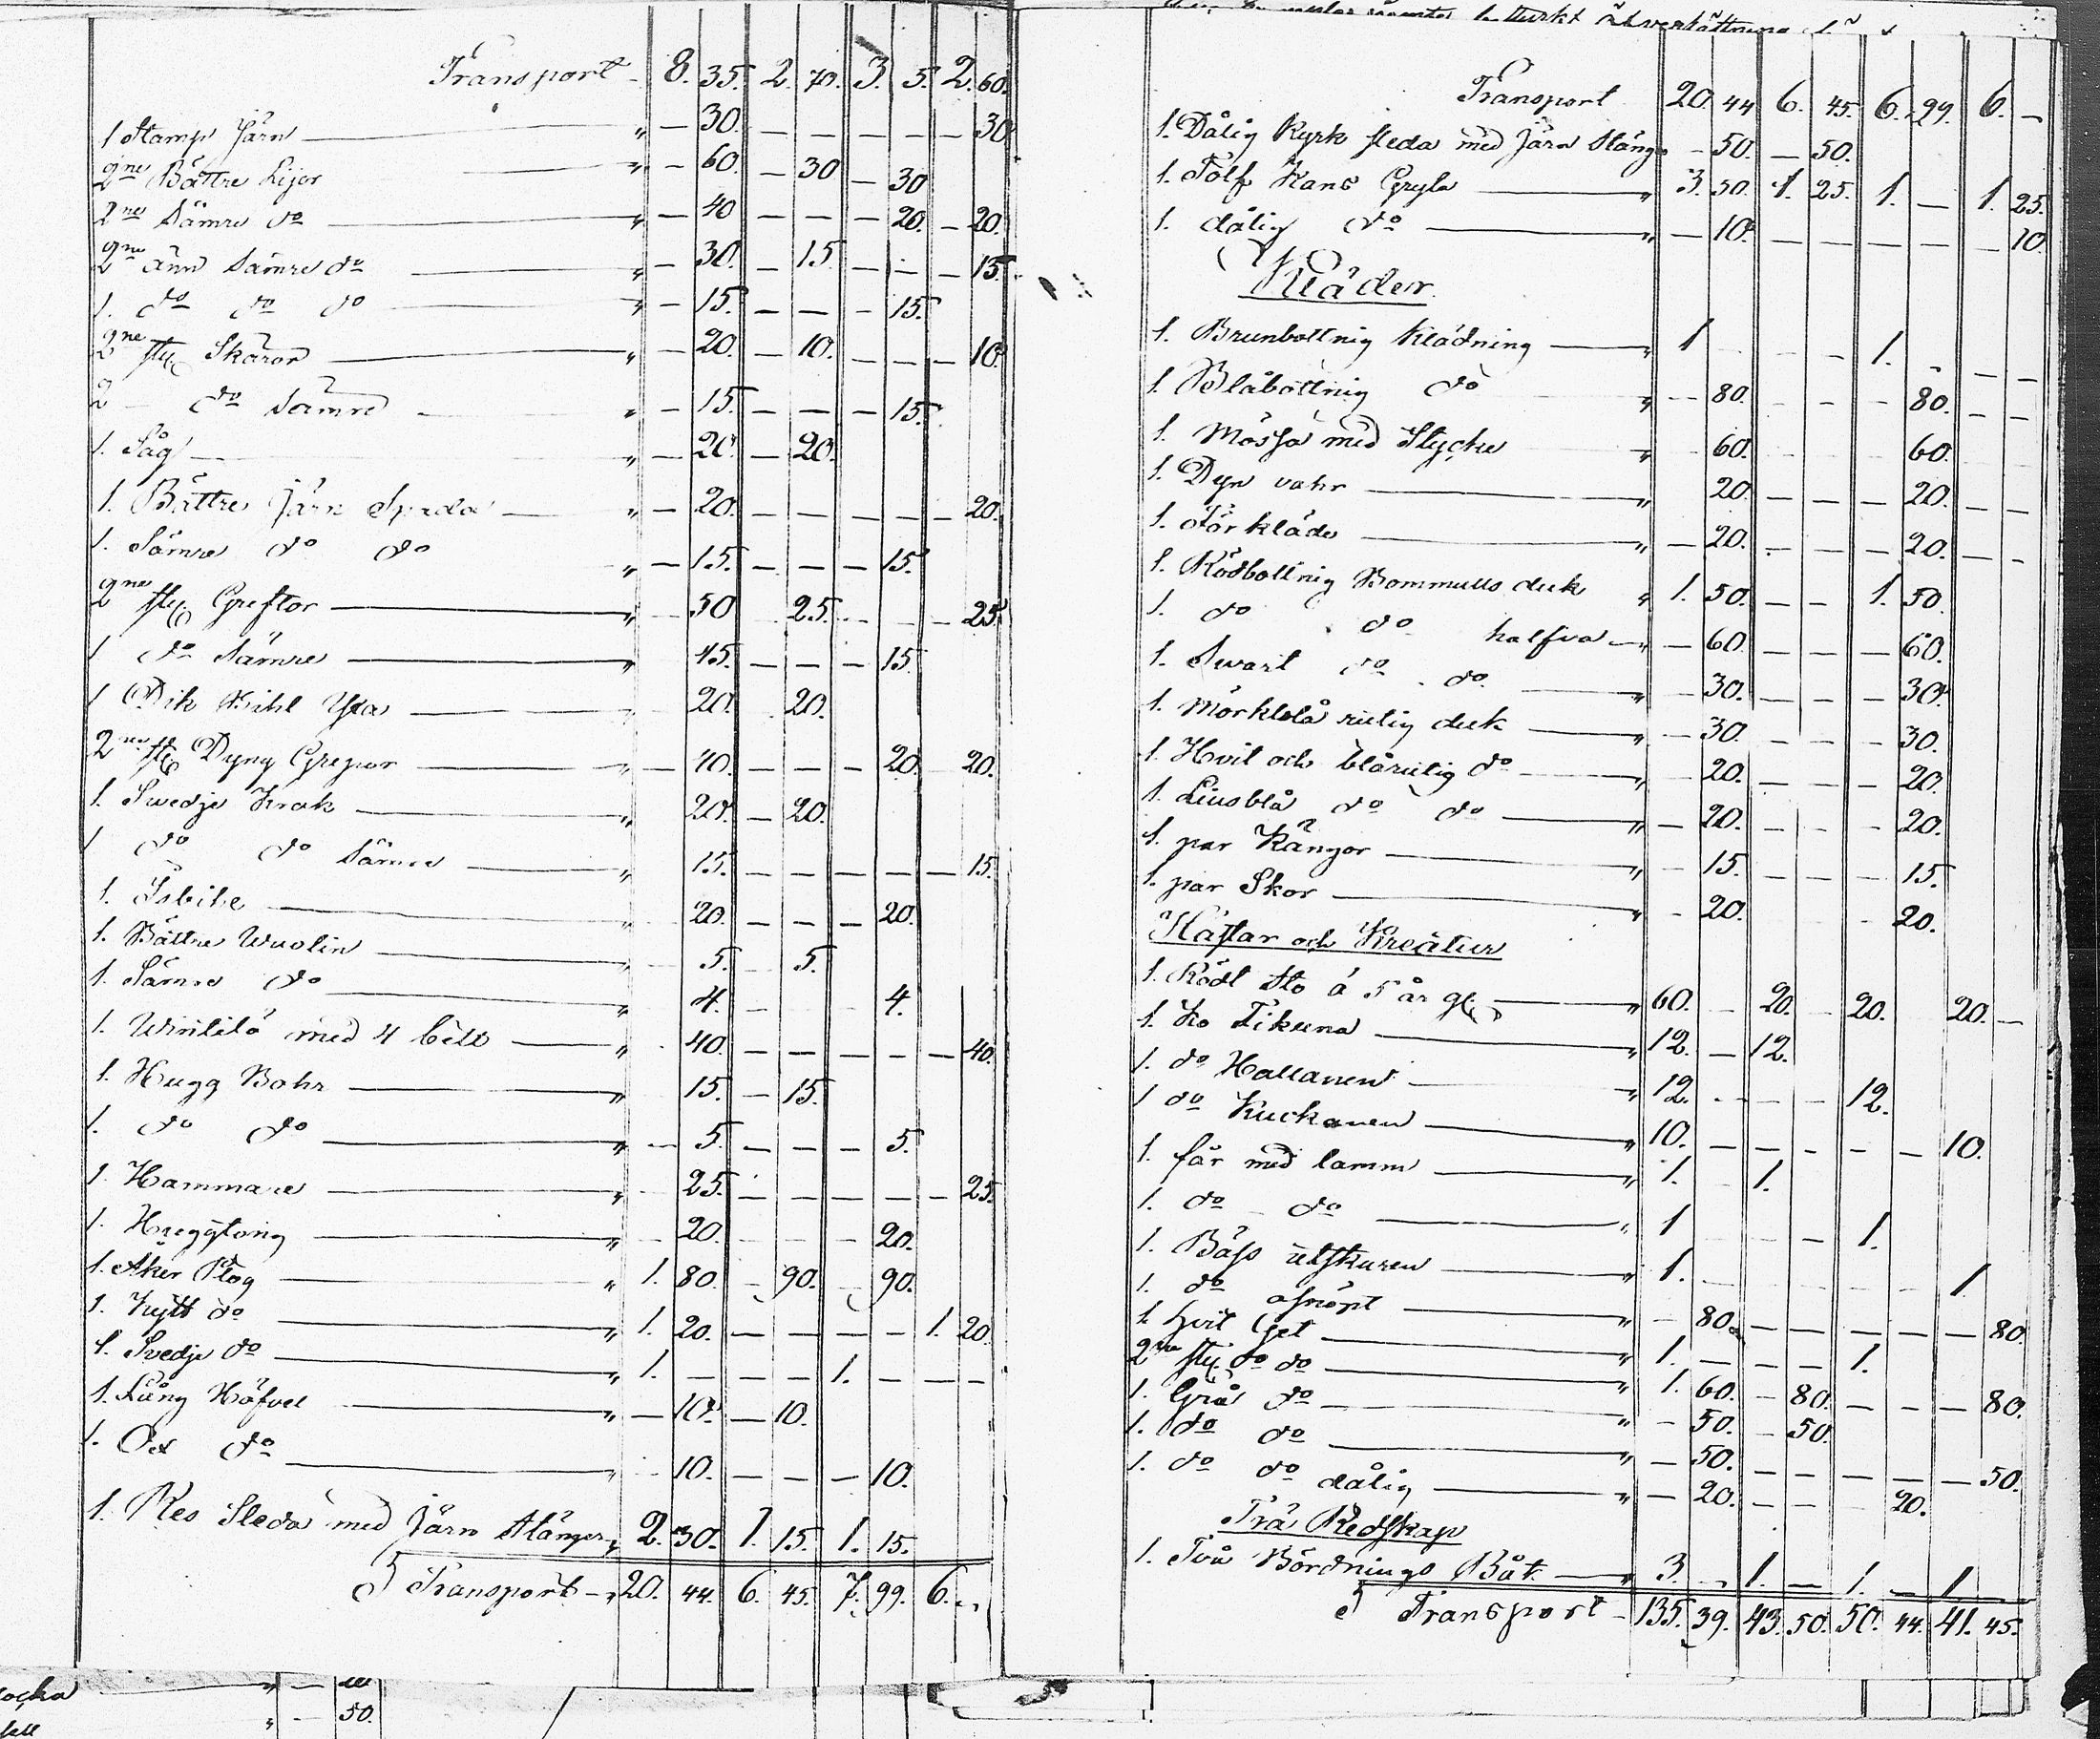 Transport 8. 35. 2. 70. 3. 5. 2. 60.
1 Stamp Järn " — 30. — — — — — 30
2ne Bättre Lijor " — 60. — 30 — 30
2ne Sämre do " — 40 — — — 20. — 20.
2ne änn Sämre do " — 30. — 15. — — — 15.
1. do do do " — 15. — — — 15.
2ne sty. Skäror " — 20. — 10. — — — 10.
2 do Sämre " — 15. — — — 15.
1. Såg " — 20. — 20.
1. Bättre Järn Spada " — 20. — — — — — 20.
1. Sämre do do " — 15. — — — 15.
2ne sty. Greftor " — 50 25. — — — 25.
1 do Sämre " 15. — — — 15
1 Dik Bihl Yxa " 20. 20.
2ne sty Dyng Grepar " — 40. — — — 20. 20.
1. Swedje Krok " 20. — 20.
1 do do Sämre " 15. — — — — — 15.
1. Isbile " 20. — — — 20.
1. Bättre Wuolin " 5. 5.
1. Sämre do " 4. — 4.
1. Wintilö med 4 bett " 40. — — — — — 40.
1. Hugg Bohr " 15. — 15.
1. do do " — 5. — — — 5.
1. Hammare " 25. — — — — — 25.
1. Hofgtång " 20. — — — 20.
1. Åker Plog " 1. 80. — 90. — 90.
1. Kytt do " 1. 20. — — — — 1. 20.
1. Svedje do " 1. — — — 1. — — —
1. Lång Höfvel " — 10. — 10.
1. Ox do " — 10. — — — 10.
1. Res Sleda med Järn Stänger " 2. 30. 1. 15. 1. 15.
Transport " 20. 44. 6. 45. 7. 99. 6. —
Transport 20. 44 6. 45. 6. 99. 6. —
1. Dålig Kyrk sleda med Järn Stäng — 50. — 50.
1. Tolf Kans Gryta " 3. 50. 1. 25. 1. — 1. 25.
1. dålig do " — 10. — — — — — 10.
Kläder.
1. Brunbottnig Klädning " 1 — — — 1. — — —
1. Blåbottnig do " — 80. — — — 80. — —
1. Mössa med Stycke " 60. 60.
1. Dyn vahr " 20. — — — 20. — —
1. Förkläde " — 20. — — — 20. — —
1. Rödbottnig Bommulls duk " 1. 50. — — 1. 50.
1. do do halfva " — 60. — — — 60.
1. Swart do do " — 30. — — — 30.
1. Mörkblå rutig duk " — 30. — — — 30.
1. Hvit och blårutig do " 20. — — — 20.
1. Liusblå do do " — 20. — — — 20.
1. par Kängor " — 15. — — — 15.
1. par Skor " — 20. — 20.
Hästar och Kreatur
1. Rödt Sto á 5 år gl. " 60. — 20. — 20. 20. —
1. Ko Tikuna " 12. — 12.
1. do Hallanen " 12. — — — 12.
1 do Kuckanen " 10. — — — — — 10.
1. får med lamm " 1. — 1.
1. do do " 1 — — — 1.
1. Bäss utskuren " 1. — — — — — 1
1. do osnöpt " — 80. — — — — — 80.
1. Hvit Get " 1. — — — 1.
2ne sty. do do " 1. 60. — 80. — — — 80.
1. Grå do " — 50. — 50.
1. do do " — 50. — — — — — 50.
1. do do dålig " — 20. — — — 20.
Trä Redskap
1. Två Bördnings Båt " 3. — 1. — 1. — 1. —
Transport — 135. 39. 43. 50. 50. 44. 41. 45.
" — 50.